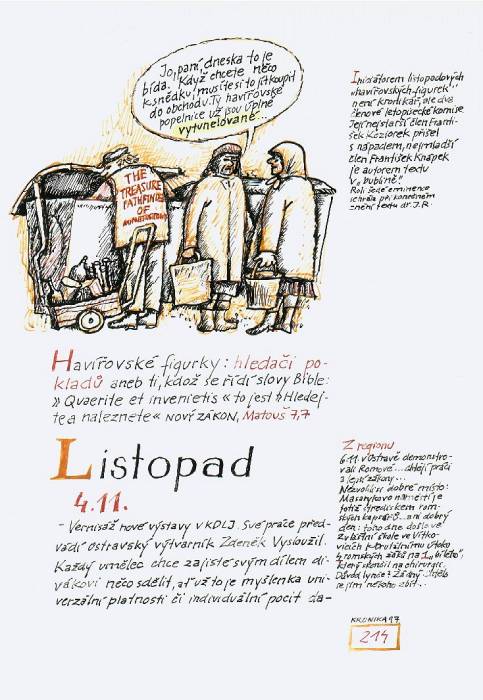 Jo, paní, dneska to je
bída. Když chcete něco
k snědku, musíte si to jít koupit
do obchodu. Ty havířovské
popelnice už jsou úplně
vytunelované...
THE
TREASURE
PATHFINDERS
OF
Iniciátorem listopadových
„havířovských figurek"
není kronikář, ale dva
členové letopisecké komise
Její nejstarší člen Franti-
šek Keziorek přišel
s nápadem, nejmladší
člen František Knapek
je autorem textu
v „bublině".
Roli šedé eminence
sehrála při konečném
znění textu dr. J.R.
Havířovské figurky: hledači po-
kladů aneb ti, kdož se řídí slovy Bible:
» Quaerite et invenietis « to jest » Hledej-
te a naleznete « NOVÝ ZÁKON, Matouš 7,7
Listopad
4.11.
- Vernisáž nové výstavy v KDLJ. Své práce před-
vádí ostravský výtvarník Zdeněk Vysloužil.
Každý umělec chce zajisté svým dílem di-
vákovi něco sdělit, ať už to je myšlenka uni-
verzální platnosti či individuální pocit da-
Z regionu
6.11. v Ostravě demonstro-
vali Romové... chtějí práci
a lepší zákony...
Nezvolili si dobré místo:
Masarykovo náměstí je
totiž střediskem rom-
ských kapsářů... ani dobrý
den: toho dne došlo ve
Zvláštní škole ve Vítko-
vicích k brutálnímu útoku
romských žáků na 1 „bílého",
který skončil na chirurgii.
Důvod lynče? Žádný. Chtělo
se jim někoho zbít...
KRONIKA 97
214